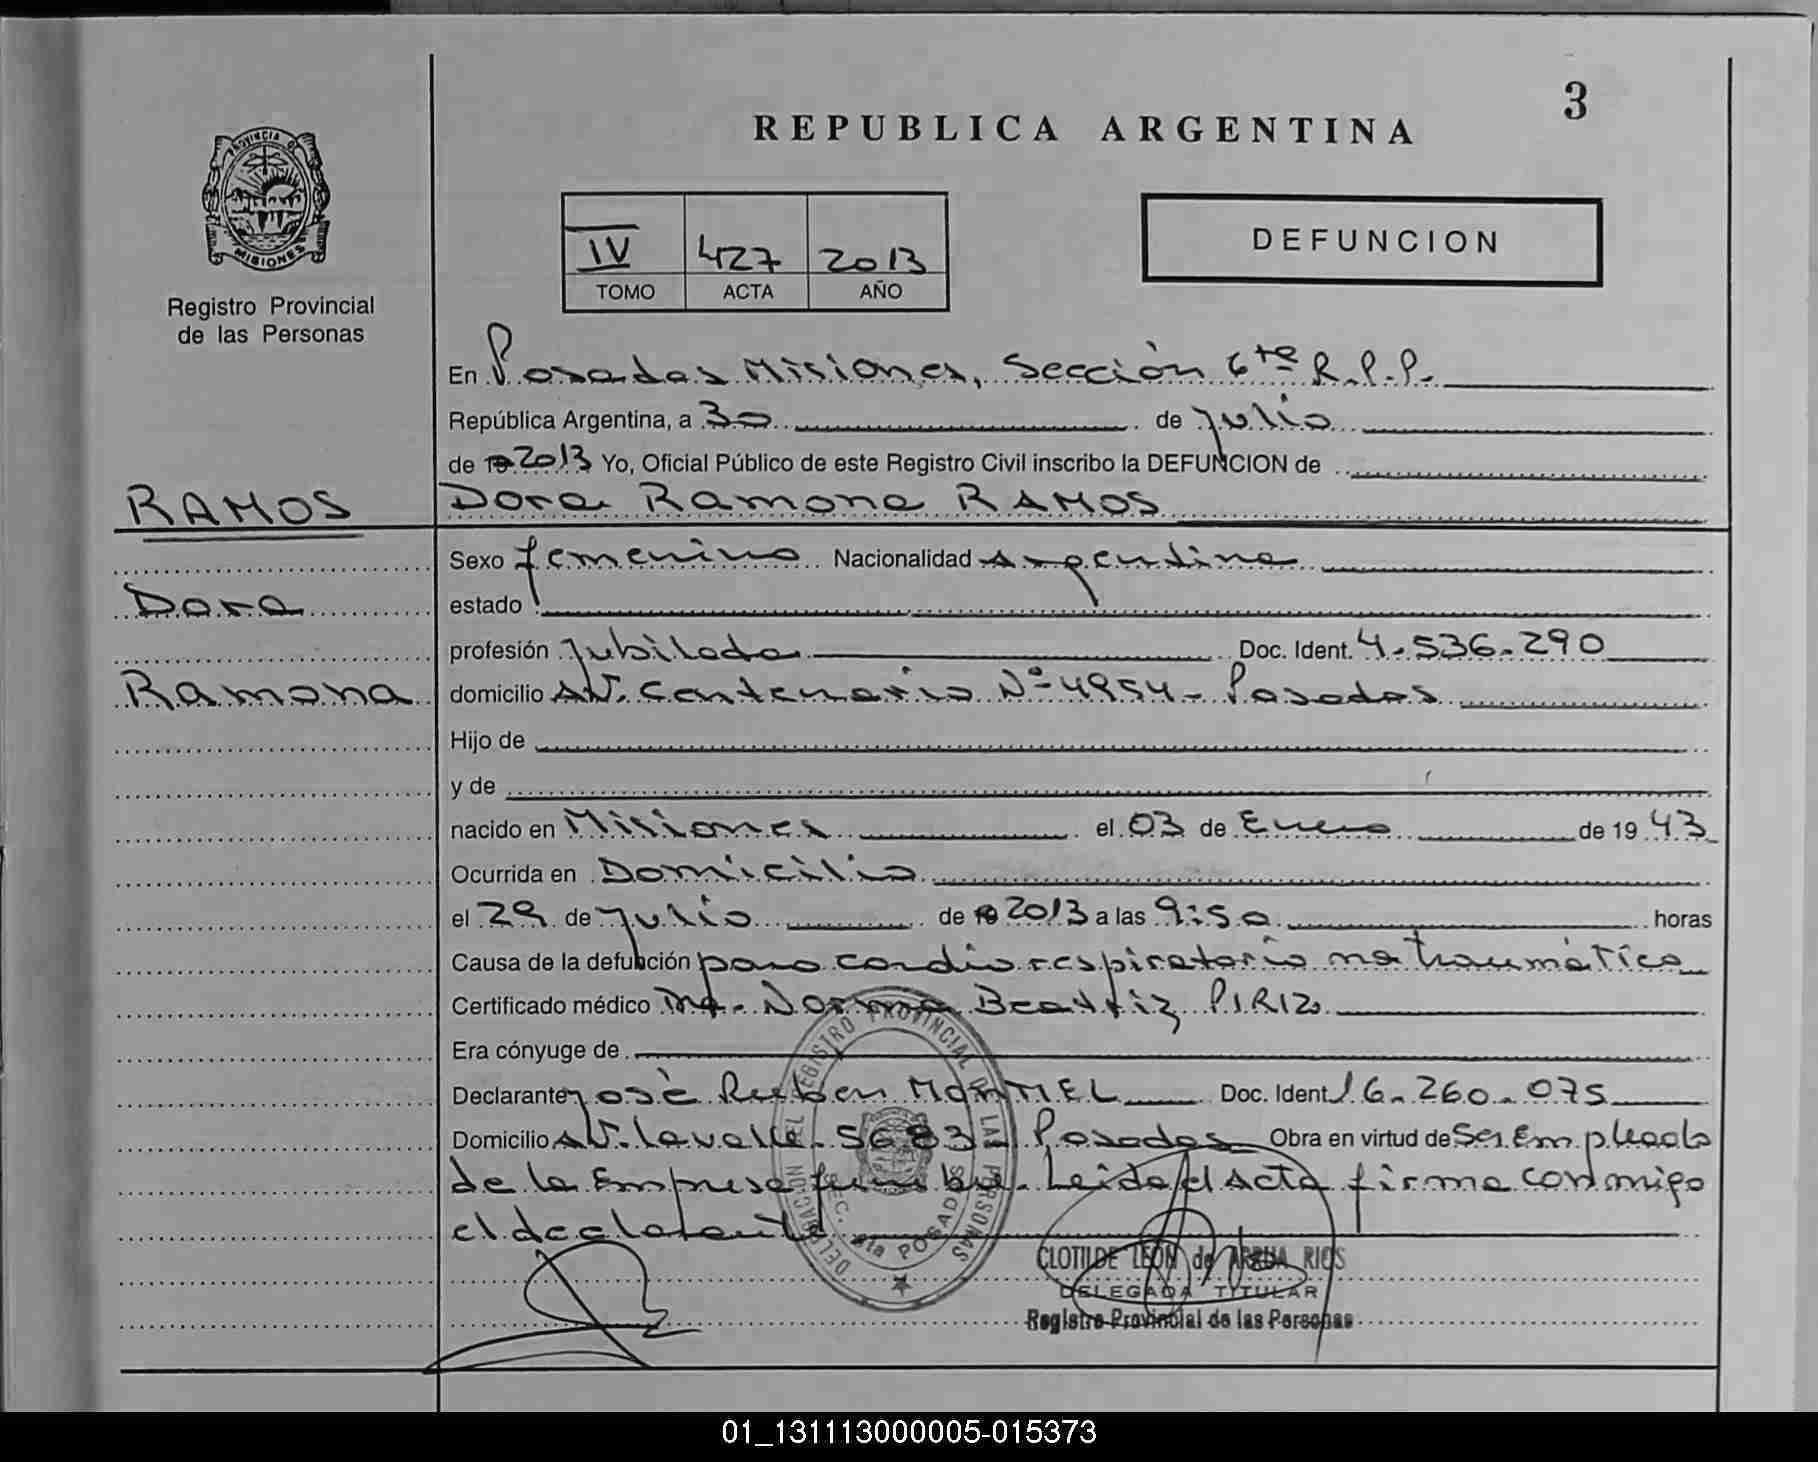 3
REPUBLICA ARGENTINA
PROVINCIA D
MISIONES
Registro Provincial
de las Personas
IV 427 2013
TOMO ACTA AÑO
DEFUNCION
En Posadas Misiones, Sección 6ta R.P.P.
República Argentina, a 30 de Julio
de 2013 Yo, Oficial Público de este Registro Civil inscribo la DEFUNCION de
RAMOS
Dora Ramona RAMOS
Dora
Ramona
Sexo femenino Nacionalidad Argentina
estado
profesión Jubilada Doc. Ident. 4.536.290
domicilio AV. Centenario Nº 4954 - Posadas
Hijo de
y de
nacido en Misiones el 03 de Enero de 1943
Ocurrida en Domicilio
el 29 de Julio de 2013 a las 9:50 horas
Causa de la defunción paro cardio respiratorio no traumático
Certificado médico Dra. Norma Beatriz PIRIZ
Era cónyuge de
Declarante José Ruben MONTIEL Doc. Ident. 16.260.075
Domicilio AV. Lavalle 5683 - Posadas Obra en virtud de Ser Empleado
de la Empresa funebre. Leida el Acta firma conmigo
el declarante
DELEGACION DEL REGISTRO PROVINCIAL DE LAS PERSONAS
SEC. 6ta POSADAS
CLOTILDE LEON de ARRUA RIOS
DELEGADA TITULAR
Registro Provincial de las Personas
01_131113000005-015373